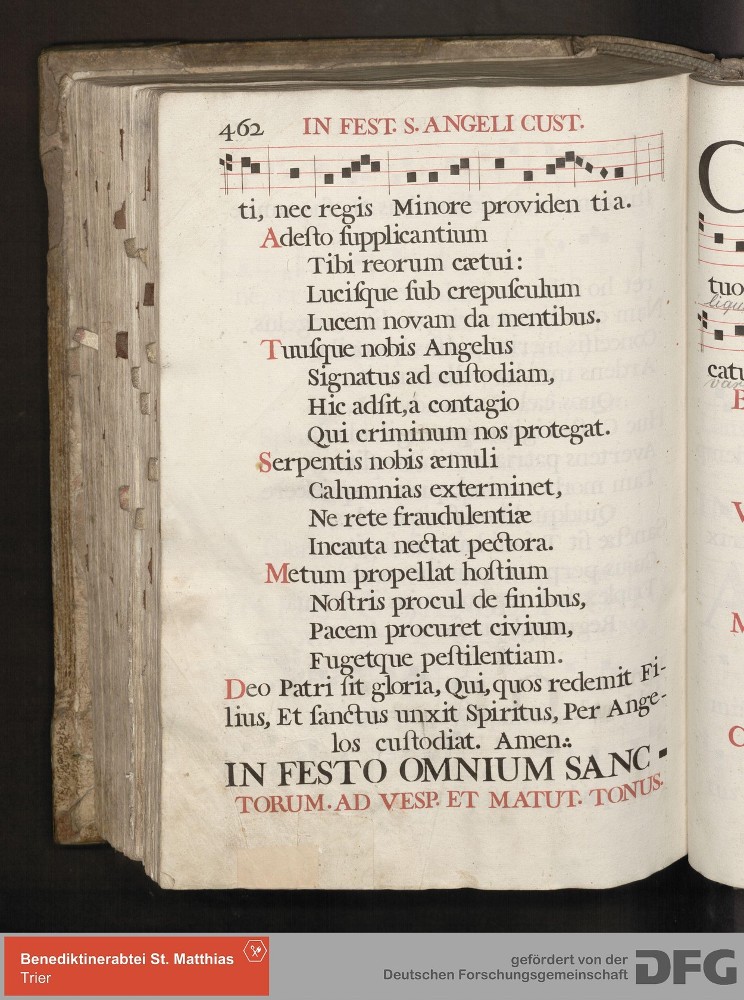 462 IN FEST. S. ANGELI CUST.
ti, nec regis Minore providen tia.
Adeſto ſupplicantium
Tibi reorum cætui:
Luciſque ſub crepuſculum
Lucem novam da mentibus.
Tuuſque nobis Angelus
Signatus ad cuſtodiam,
Hic adſit, á contagio
Qui criminum nos protegat.
Serpentis nobis æmuli
Calumnias exterminet,
Ne rete fraudulentiæ
Incauta nectat pectora.
Metum propellat hoſtium
Noſtris procul de finibus,
Pacem procuret civium,
Fugetque peſtilentiam.
Deo Patri ſit gloria, Qui, quos redemit Fi-
lius, Et ſanctus unxit Spiritus, Per Ange-
los cuſtodiat. Amen.
IN FESTO OMNIUM SANC-
TORUM. AD VESP. ET MATUT. TONUS.
tuo
liqu
catu
Benediktinerabtei St. Matthias
Trier
gefördert von der
Deutschen Forschungsgemeinschaft
DFG